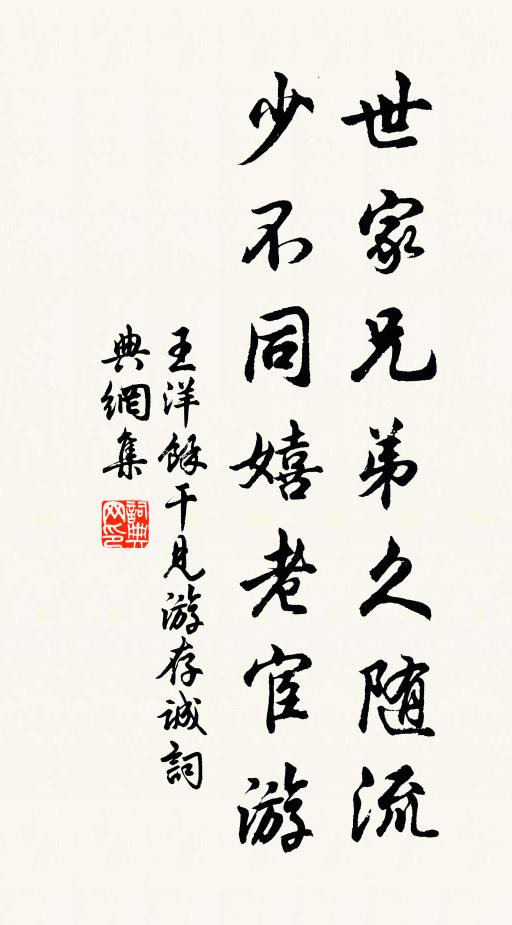 世家兄弟久随流
少不同嬉老宦游
王洋餘干見游存誠詞
典網集
詞典网印